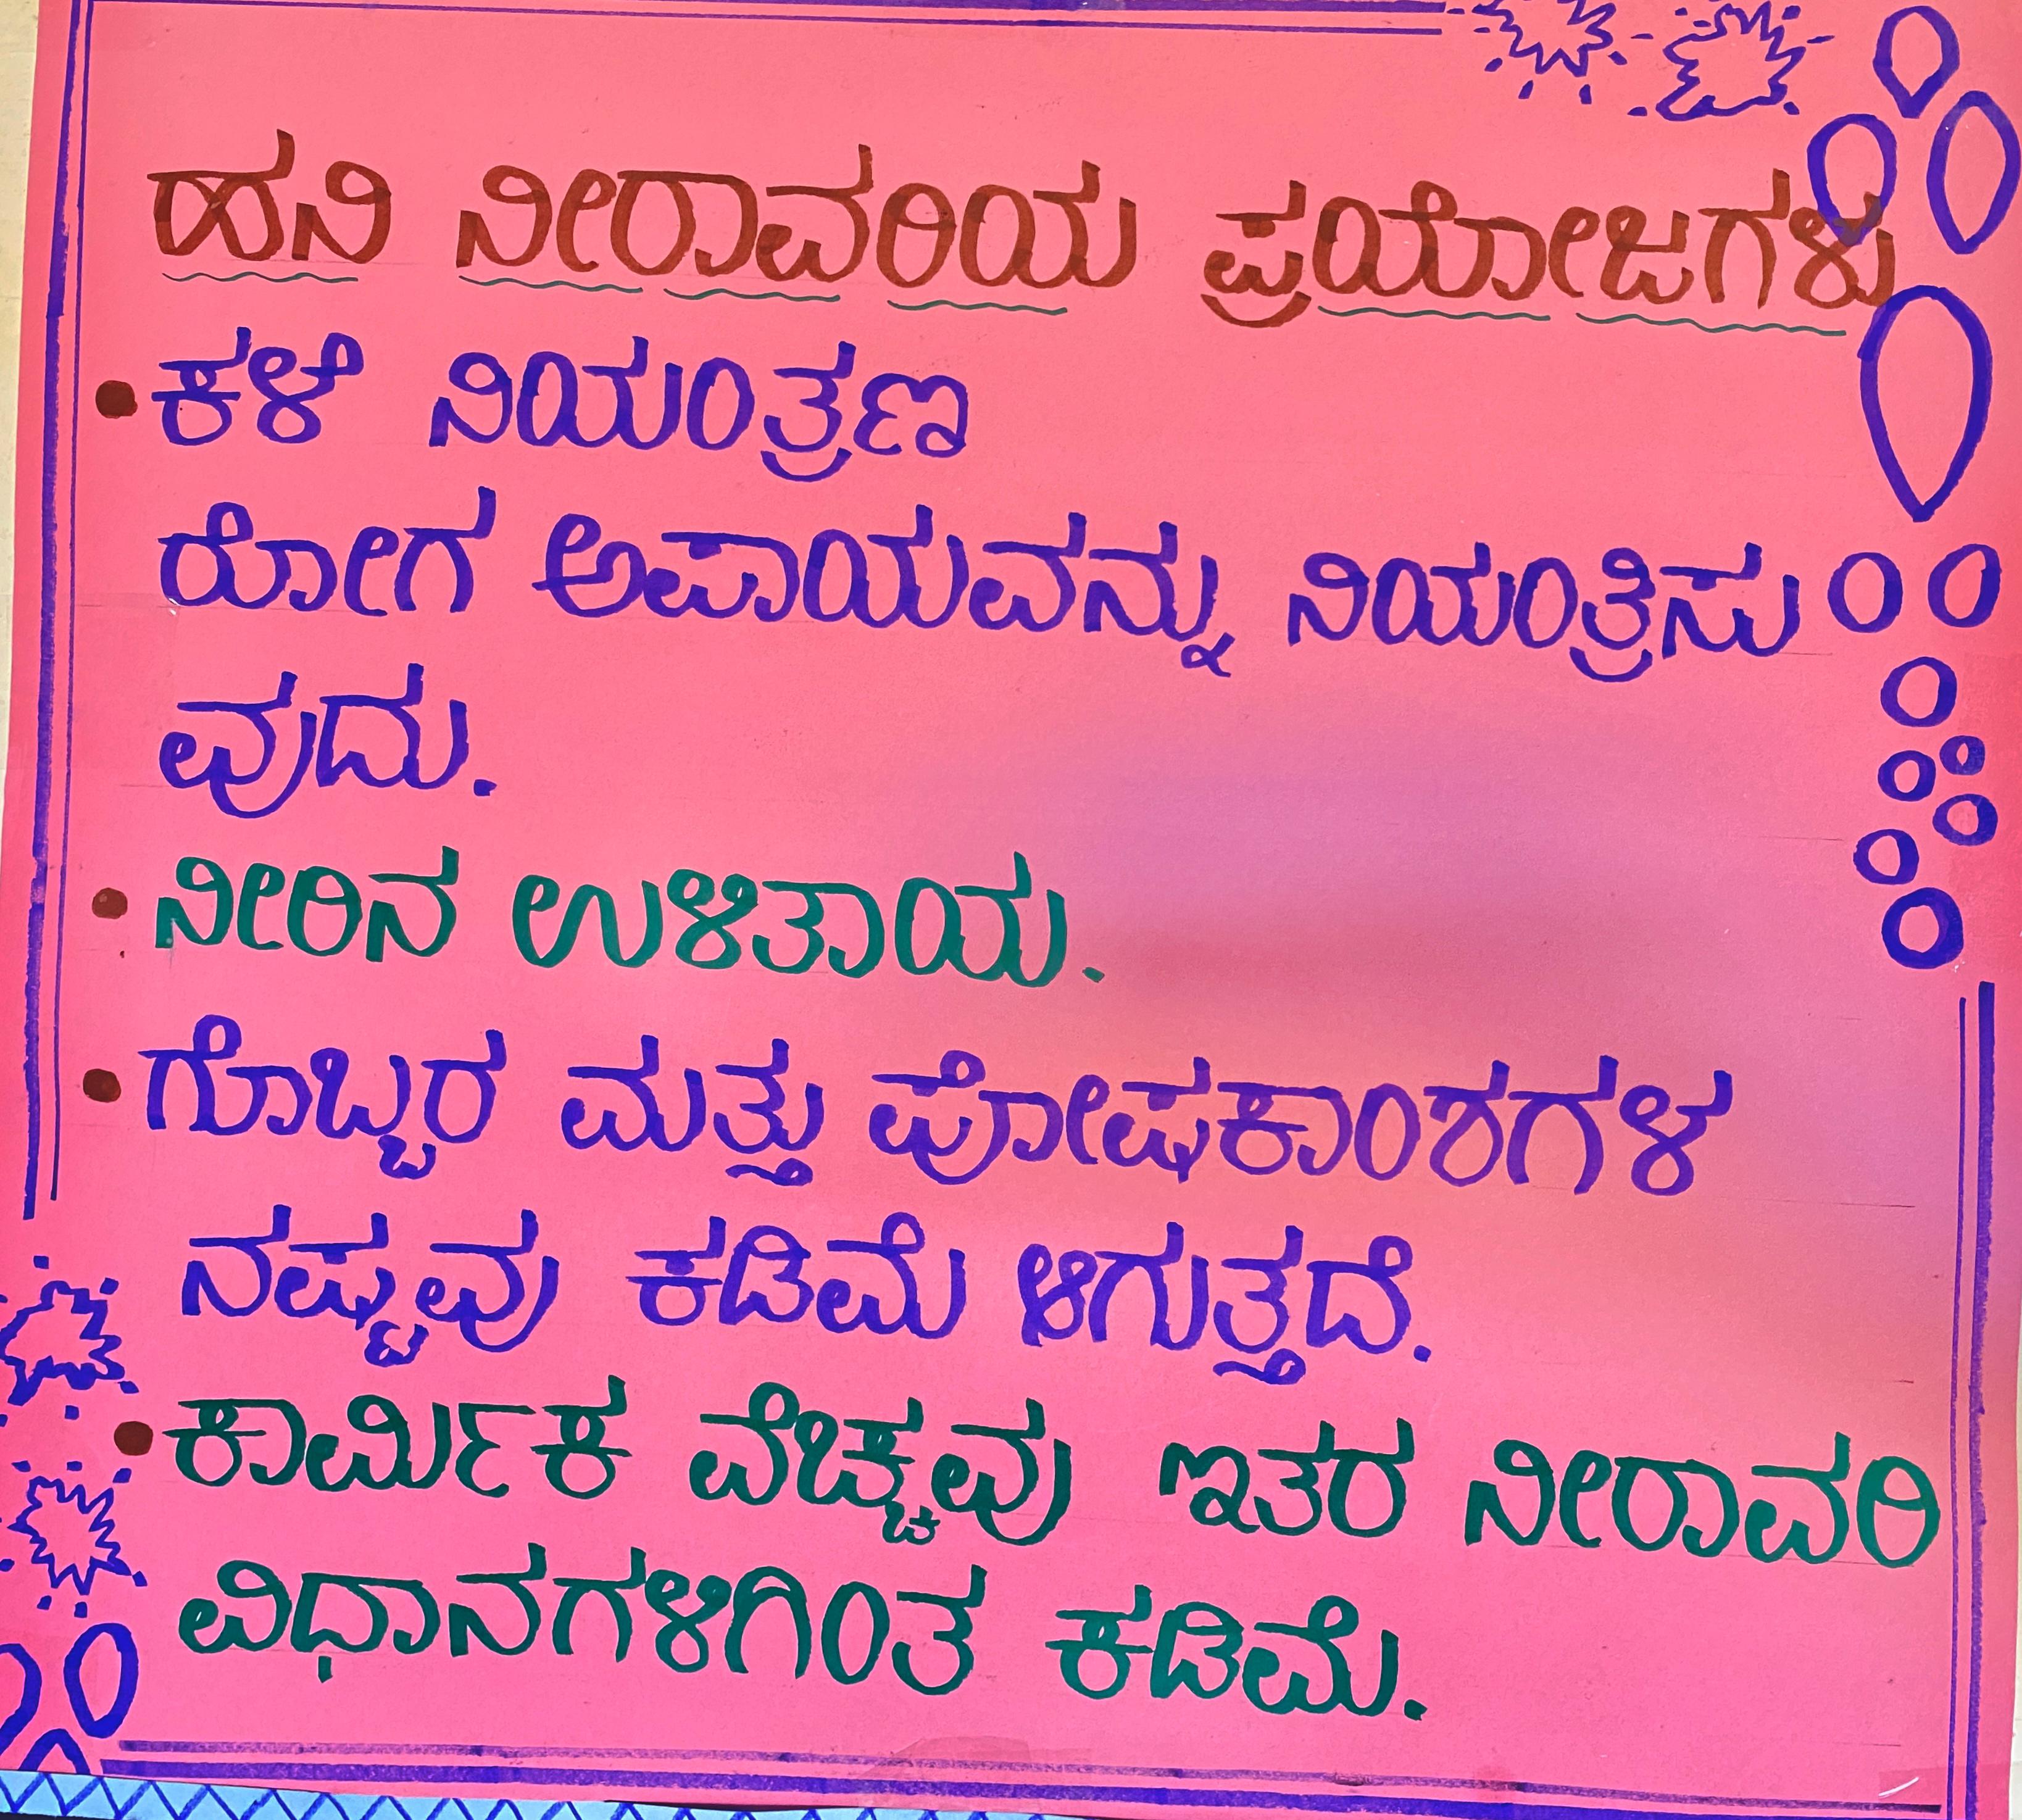 ಹನಿ ನೀರಾವರಿಯ ಪ್ರಯೋಜಗಳು
• ಕಳೆ ನಿಯಂತ್ರಣ
ರೋಗ ಅಪಾಯವನ್ನು ನಿಯಂತ್ರಿಸು
ವುದು.
• ನೀರಿನ ಉಳಿತಾಯ.
• ಗೊಬ್ಬರ ಮತ್ತು ಪೋಷಕಾಂಶಗಳ
ನಷ್ಟವು ಕಡಿಮೆ ಆಗುತ್ತದೆ.
• ಕಾರ್ಮಿಕ ವೆಚ್ಚವು ಇತರ ನೀರಾವರಿ
ವಿಧಾನಗಳಿಗಿಂತ ಕಡಿಮೆ.